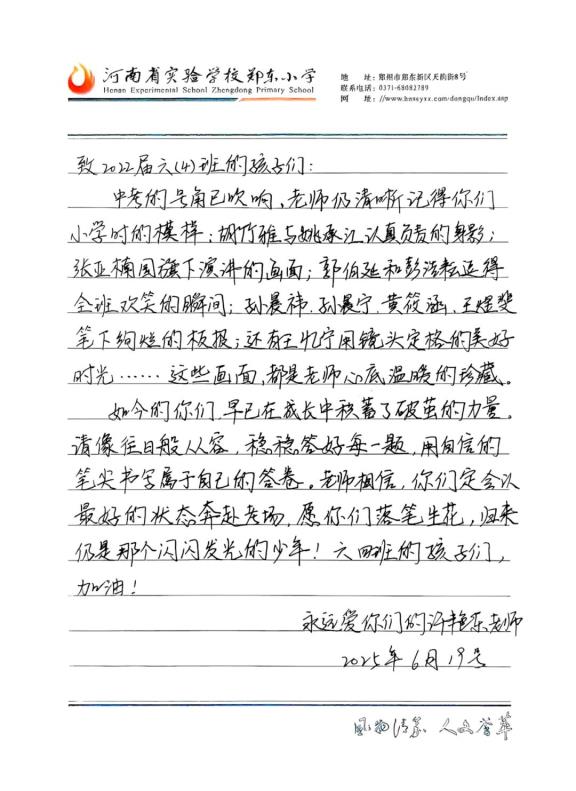 河南省实验学校郑东小学
Henan Experimental School Zhengdong Primary School
地 址：郑州市郑东新区天韵街8号
联系电话：0371-68082789
网 址：//www.hnssyxx.com/dongqu/Index.asp
致2022届六(4)班的孩子们：
中考的号角已吹响，老师仍清晰记得你们
小学时的模样：胡竹雅与姚承江认真负责的身影；
张亚楠国旗下演讲的画面；郭伯延和彭浩耘逗得
全班欢笑的瞬间；孙晨祎、孙晨宁、黄筱涵、王煜斐
笔下绚烂的板报；还有王忆宁用镜头定格的美好
时光……这些画面，都是老师心底温暖的珍藏。
如今的你们，早已在成长中积蓄了破茧的力量。
请像往日般从容，稳稳答好每一题，用自信的
笔尖书写属于自己的答卷。老师相信，你们定会以
最好的状态奔赴考场，愿你们落笔生花，归来
仍是那个闪闪发光的少年！六四班的孩子们，
加油！
永远爱你们的许艳东老师
2025年6月19号
风物清嘉 人文荟萃